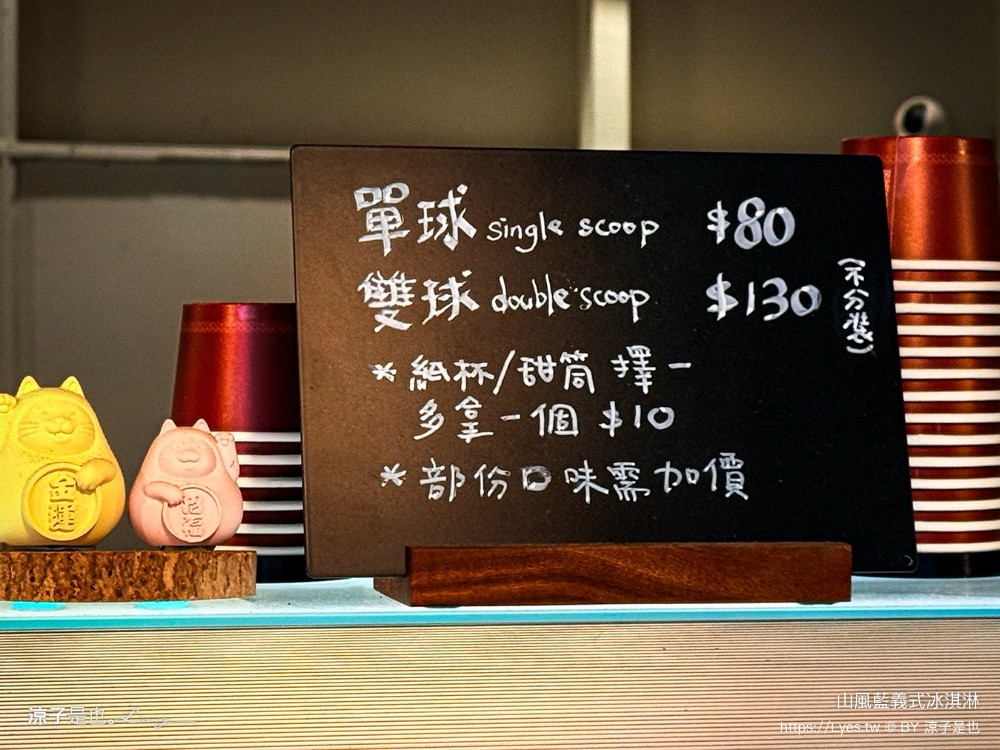 單球 single scoop $80
雙球 double scoop $130 (不分裝)
*紙杯/甜筒 擇一
多拿一個 $10
*部份口味需加價
金運
招福
山風藍義式冰淇淋
涼子是也
https://Lyes.tw © BY 涼子是也